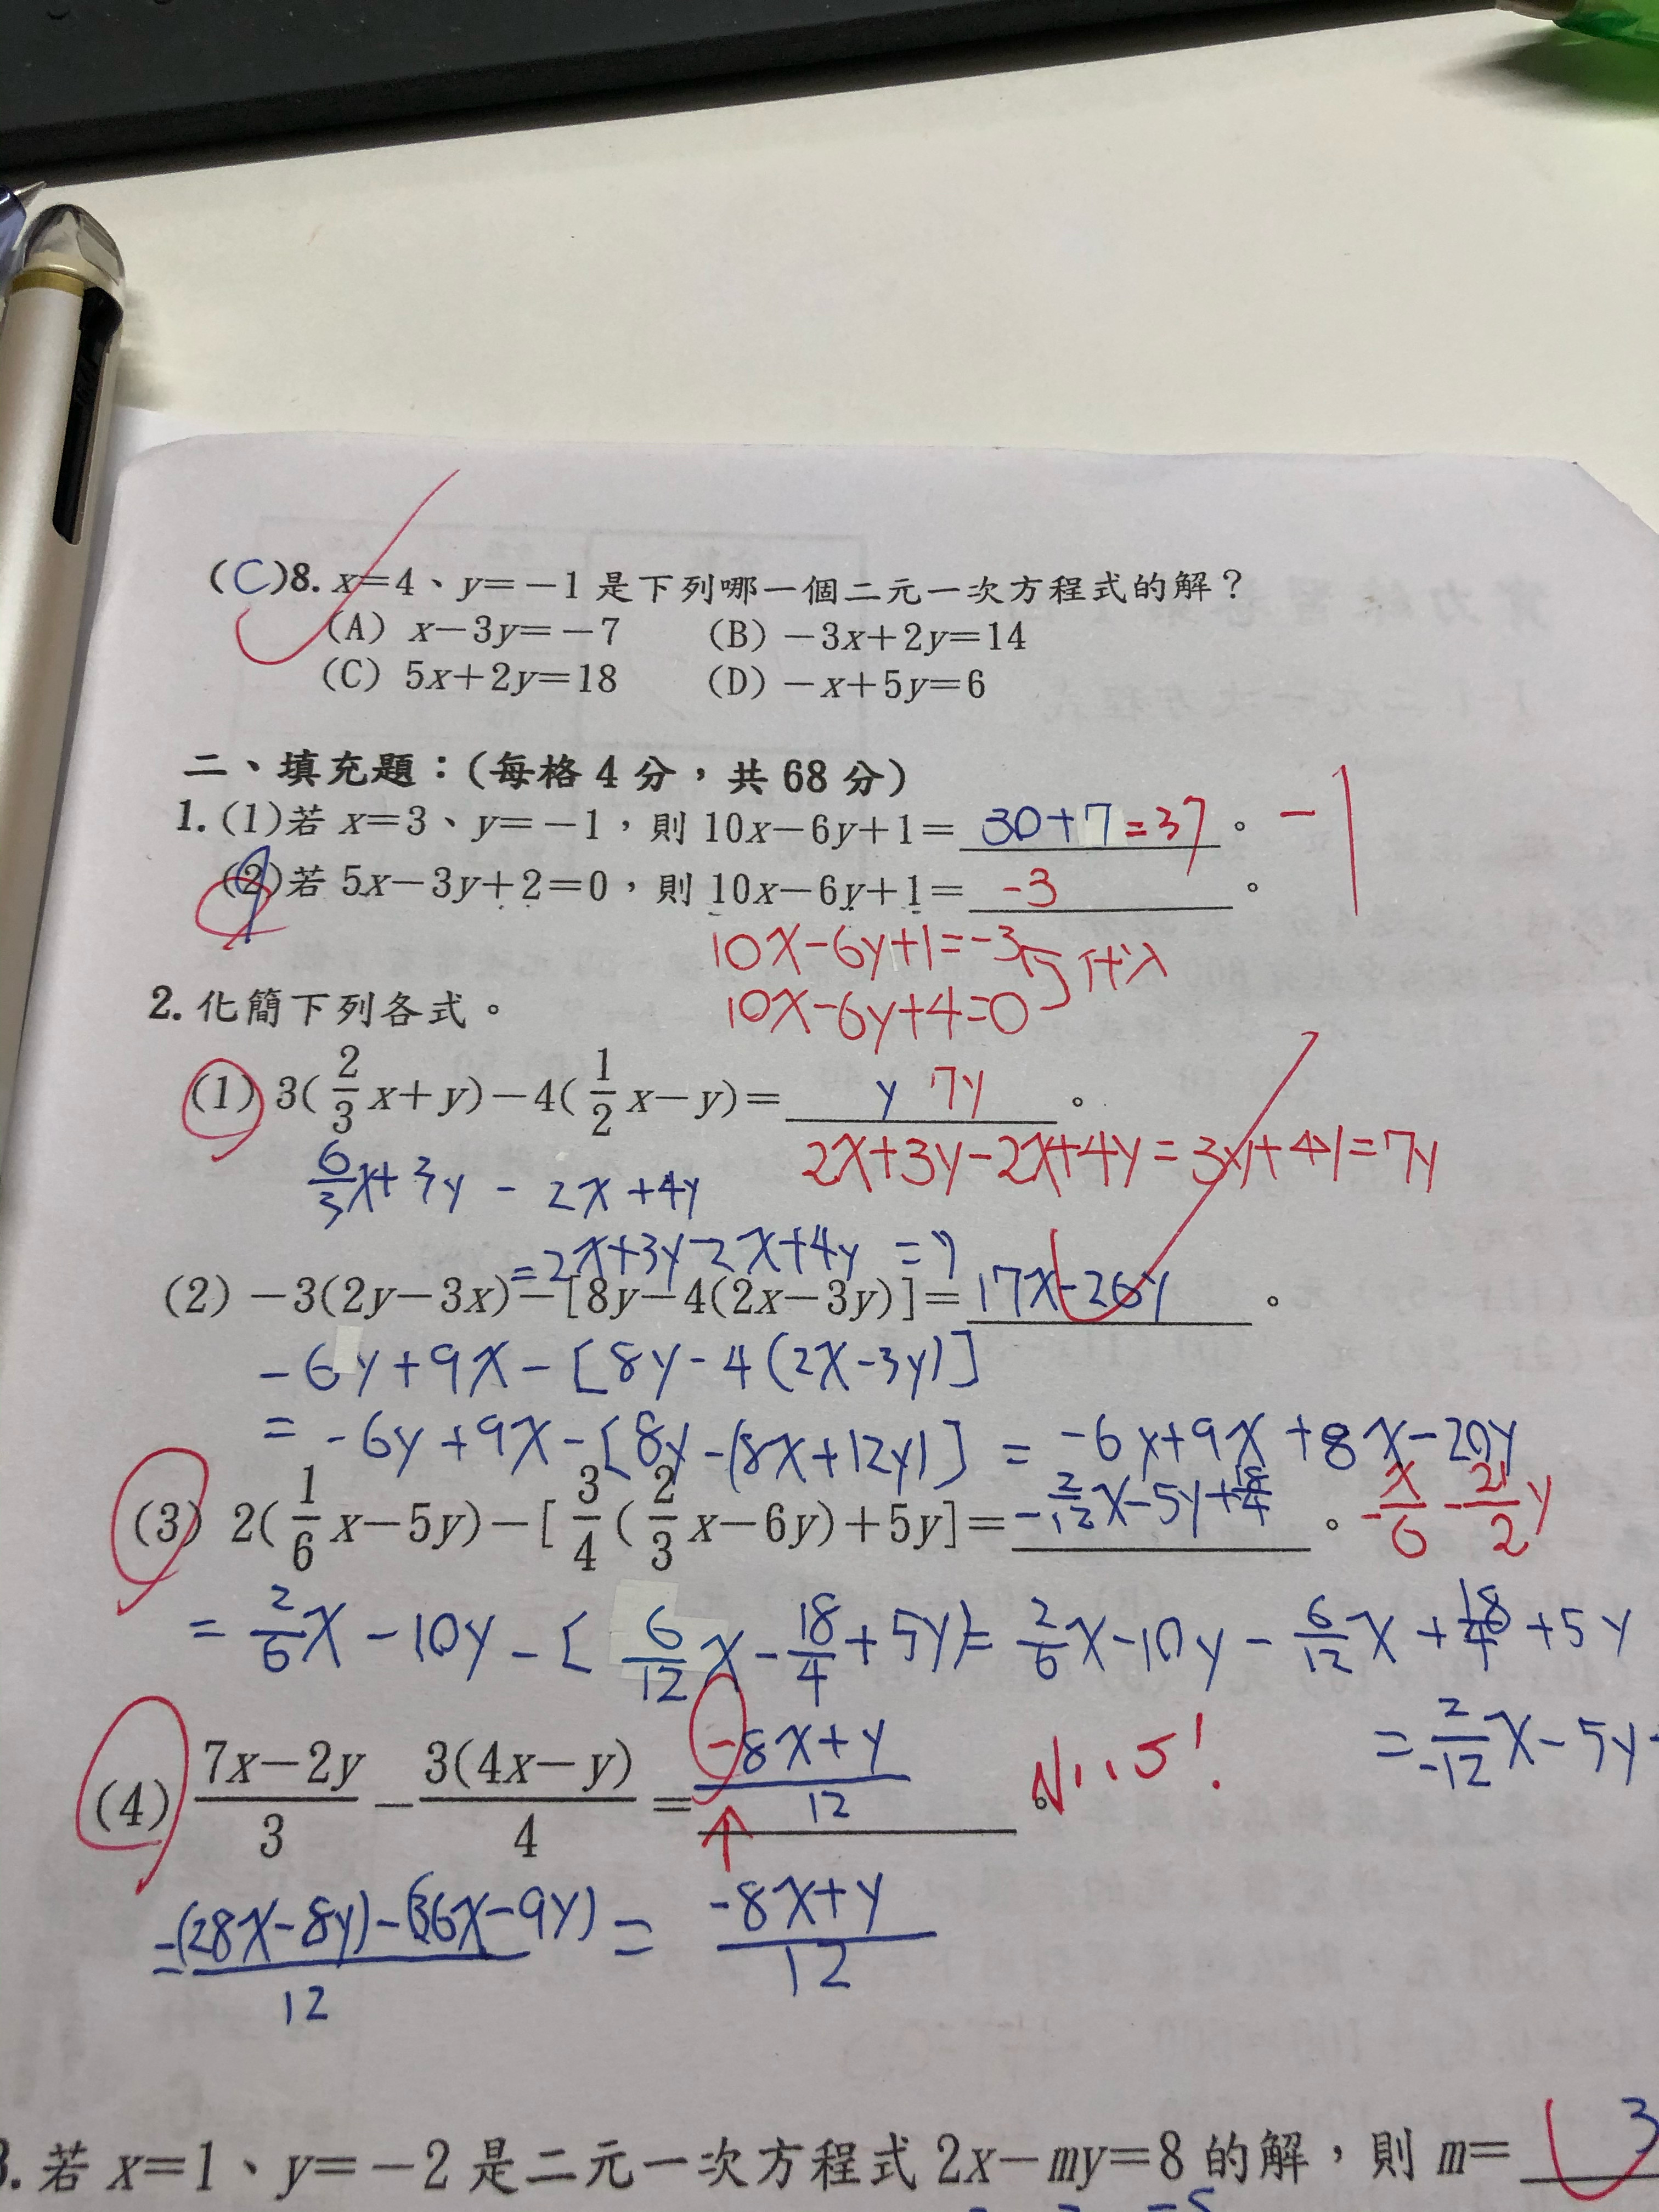 (C)8. x=4、y=-1 是下列哪一個二元一次方程式的解？
(A) x-3y=-7 (B) -3x+2y=14
(C) 5x+2y=18 (D) -x+5y=6
二、填充題：(每格 4 分，共 68 分)
1. (1)若 x=3、y=-1，則 10x-6y+1= 30+7=37 。 -1
(2)若 5x-3y+2=0，則 10x-6y+1= -3 。
10x-6y+1=-3
10x-6y+4=0 代入
2. 化簡下列各式。
(1) 3(2/3 x+y)-4(1/2 x-y)= y 7y 。
2x+3y-2x+4y=3y+4y=7y
6/3 x+3y - 2x+4y
=2x+3y-2x+4y =
(2) -3(2y-3x)-[8y-4(2x-3y)]= 17x-26y 。
-6y+9x-[8y-4(2x-3y)]
= -6y+9x-[8y-(8x+12y)] = -6y+9x+8x-20y
(3) 2(1/6 x-5y)-[3/4(2/3 x-6y)+5y]= -2/12 x-5y+18/4 。 -x/6 -21/2 y
= 2/6 x-10y-[6/12 x-18/4+5y]= 2/6 x-10y-6/12 x+18/4+5y
= 2/-12 x-5y
(4) (7x-2y)/3 - 3(4x-y)/4 = (-8x+y)/12 。
=((28x-8y)-(36x-9y))/12 = (-8x+y)/12
3. 若 x=1、y=-2 是二元一次方程式 2x-my=8 的解，則 m= 3